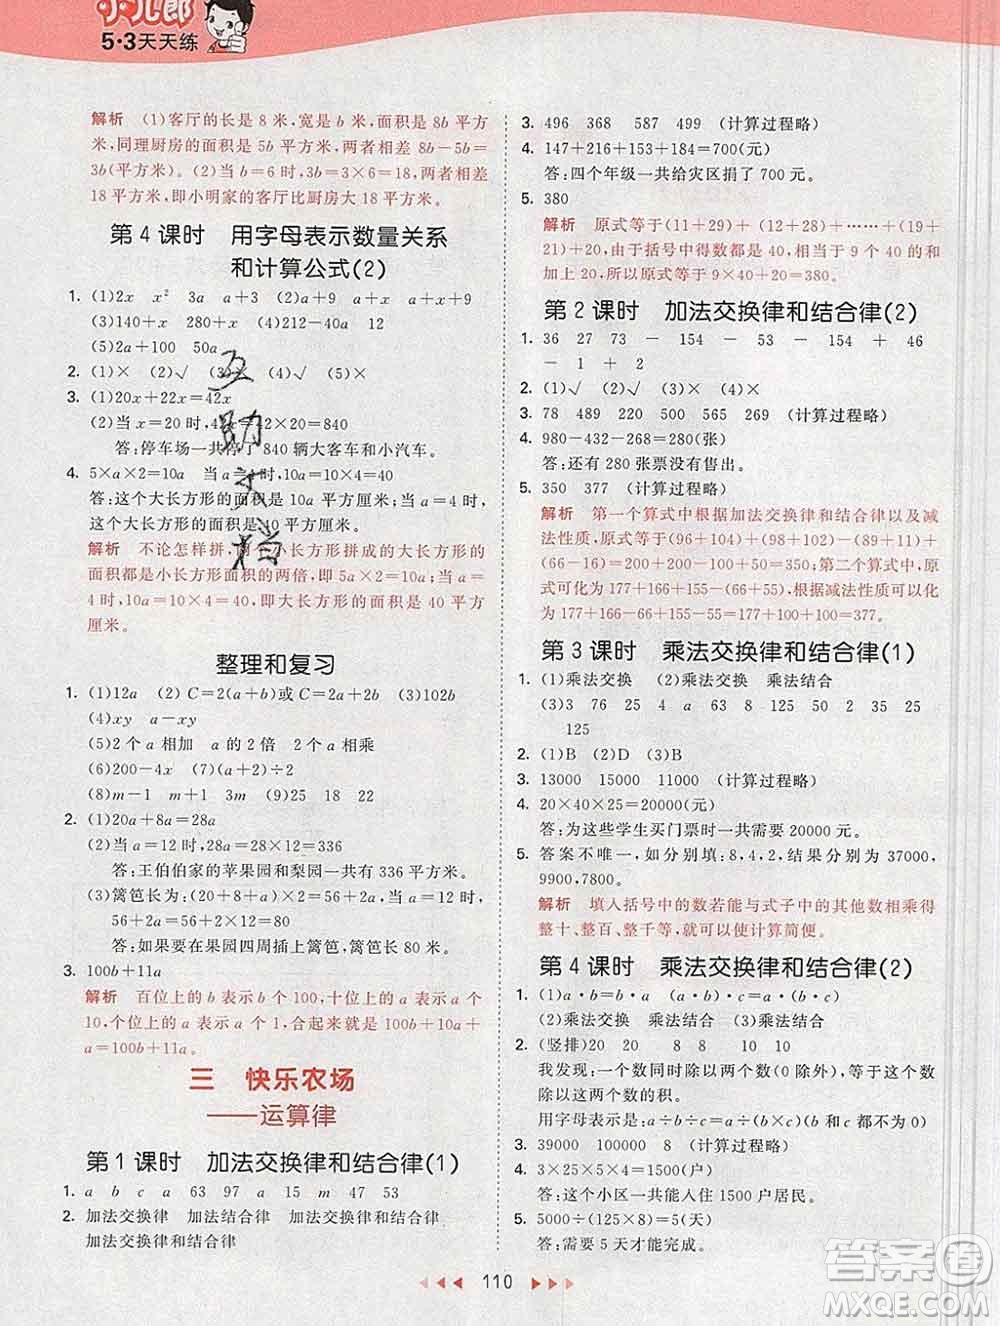 小儿郎
5·3天天练
解析 (1)客厅的长是 8 米,宽是 b 米,面积是 8b 平方
米,同理厨房的面积是 5b 平方米,两者相差 8b-5b=
3b(平方米)。(2)当 b=6 时,3b=3×6=18,两者相差
18 平方米,即小明家的客厅比厨房大 18 平方米。
第 4 课时 用字母表示数量关系
和计算公式(2)
1. (1)2x x² 3a a+3 (2)a+9 a+x a+9
(3)140+x 280+x (4)212-40a 12
(5)2a+100 50a
2. (1)× (2)√ (3)× (4)√ (5)×
3. (1)20x+22x=42x
(2)当 x=20 时,42x=42×20=840
答:停车场一共停了 840 辆大客车和小汽车。
4. 5×a×2=10a 当a=4时,10a=10×4=40
答:这个大长方形的面积是 10a 平方厘米;当 a=4 时,
这个大长方形的面积是 40 平方厘米。
解析 不论怎样拼,两个小长方形拼成的大长方形的
面积都是小长方形面积的两倍,即 5a×2=10a。当
a=4时,10a=10×4=40,即大长方形的面积是 40 平方
厘米。
整理和复习
1. (1)12a (2) C=2(a+b)或 C=2a+2b (3)102b
(4)xy a-xy
(5)2个 a 相加 a 的 2 倍 2个 a 相乘
(6)200-4x (7)(a+b)÷2
(8)m-1 m+1 3m (9)25 18 12
2. (1)20a+8a=28a
(2)当 a=12 时,28a=28×12=336
答:王伯伯家的苹果园和梨园一共有 336 平方米。
(3)篱笆长为:(20+8+a)×2=56+2a,当 a=12 时,
56+2a=56+2×12=80
答:如果要在果园四周插上篱笆,篱笆长 80 米。
3. 100b+11a
解析 百位上的 b 表示 b 个 100,十位上的 a 表示 a 个
10,个位上的 a 表示 a 个 1,合起来就是 100b+10a+
a=100b+11a。
三 快乐农场
——运算律
第 1 课时 加法交换律和结合律(1)
1. a b c a 63 97 a 15 m 47 53
2. 加法交换律 加法结合律 加法交换律 加法结合律
加法交换律和结合律
3. 496 368 587 499 (计算过程略)
4. 147+216+153+184=700(元)
答:四个年级一共给灾区捐了 700 元。
5. 380
解析 原式等于(11+29)+(12+28)+……+(19+
21)+20,由于括号中得数都是 40,相当于 9 个 40 的和
加上 20,所以原式等于 9×40+20=380。
第 2 课时 加法交换律和结合律(2)
1. 36 27 73 - 154 - 53 - 154 + 46
- 1 + 2
2. (1)√ (2)√ (3)√ (4)×
3. 78 489 816 500 565 269 (计算过程略)
4. 980-432-268=280(张)
答:还有 280 张票没有售出。
5. 350 377 (计算过程略)
解析 第一个算式中根据加法交换律和结合律以及减
法性质,原式=(96+104)+(98+102)-(86+14)+
(66-16)=200+200-100+50=350;第二个算式中,原
式可化为 177+166-66+(155-55),根据减法性质可以化
为 177+166-66+155-55=177+100+100=377。
第 3 课时 乘法交换律和结合律(1)
1. (1)乘法交换 (2)乘法交换 乘法结合
(3)3 76 25 4 125 8 50 2 89 125
125
2. (1)B (2)D (3)B
3. 13000 15000 11000 (计算过程略)
4. 20×40×25=20000(元)
答:为这些学生买门票时一共需要 20000 元。
5. 答案不唯一,如分别填:8,4,2,结果分别为 37000,
9900,7800。
解析 填入括号中的数若能与式子中的其他数相乘得
整十、整百、整千等,就可以使计算简便。
第 4 课时 乘法交换律和结合律(2)
1. (1)a·b=b·a (a·b)·c=a·(b·c)
(2)乘法交换 乘法结合 (3)乘法交换
2. (竖排)20 20 8 8 10 10
我发现:一个数同时除以两个数(0 除外),等于这个数
除以这两个数的积。
用字母表示:a÷b÷c=a÷(b×c)(b 和 c 都不为 0)
3. 39000 100000 8 (计算过程略)
4. 3×25×4×5=1500(户)
答:这个小区一共能入住 1500 户居民。
5. 5000÷(125×8)=5(天)
答:需要 5 天才能完成。
110
互
助
文
档
答案圈
MXQE.COM